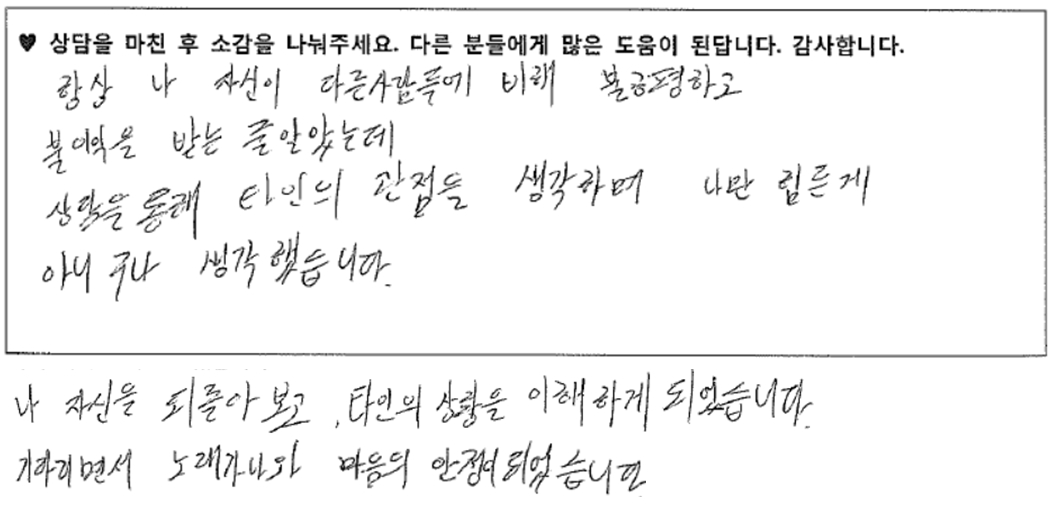 ♥ 상담을 마친 후 소감을 나눠주세요. 다른 분들에게 많은 도움이 된답니다. 감사합니다.
항상 나 자신이 다른사람들에 비해 불공평하고
불이익을 받는 줄알았는데
상담을 통해 타인의 관점들 생각하며 나만 힘든게
아니구나 생각했습니다.
나 자신을 되돌아보고, 타인의 상황을 이해하게 되었습니다.
노래가나와 마음의 안정이되었습니다